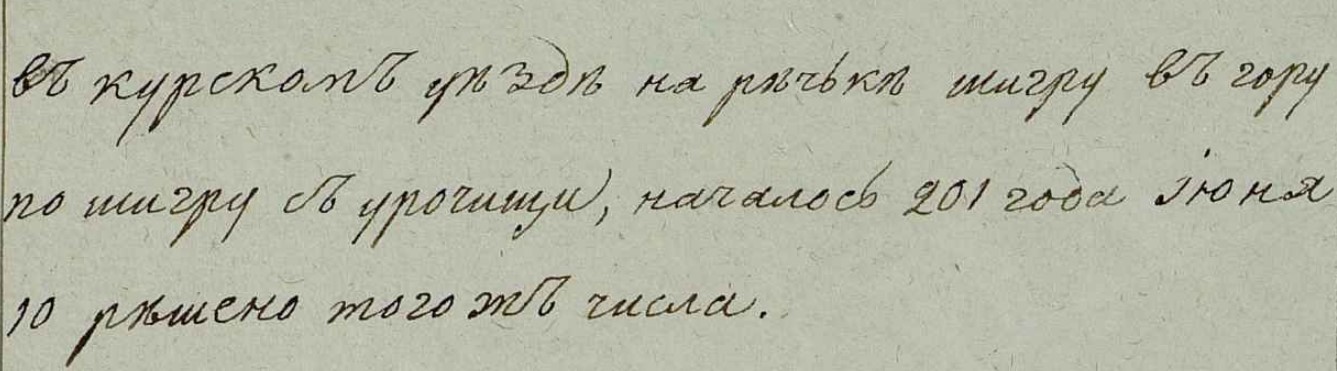 въ курскомъ уѣздѣ на рѣчькѣ шигру въ гору
по шигру съ урочищи, началось 201 года Июня
10 рѣшено того жъ числа.